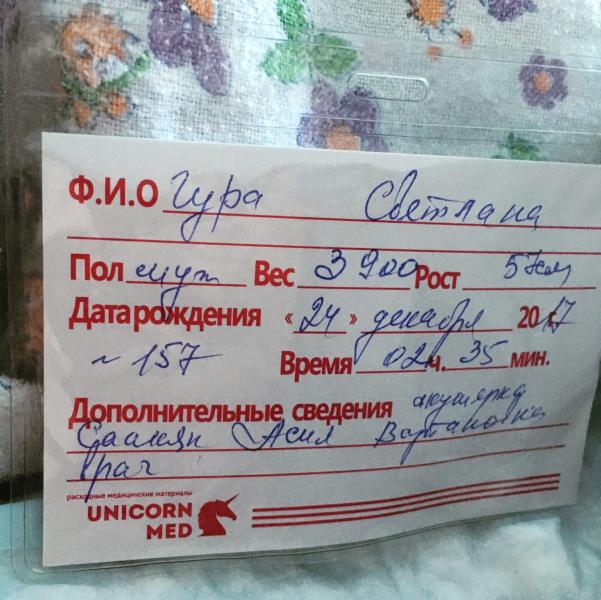 Ф.И.О Гура Светлана
Пол муж Вес 3 900 Рост 57см
Дата рождения «24» декабря 2017
~ 157 Время 02ч. 35 мин.
Дополнительные сведения акушерка
Саакян Асил Вартановна
Врач
расходные медицинские материалы
UNICORN
MED